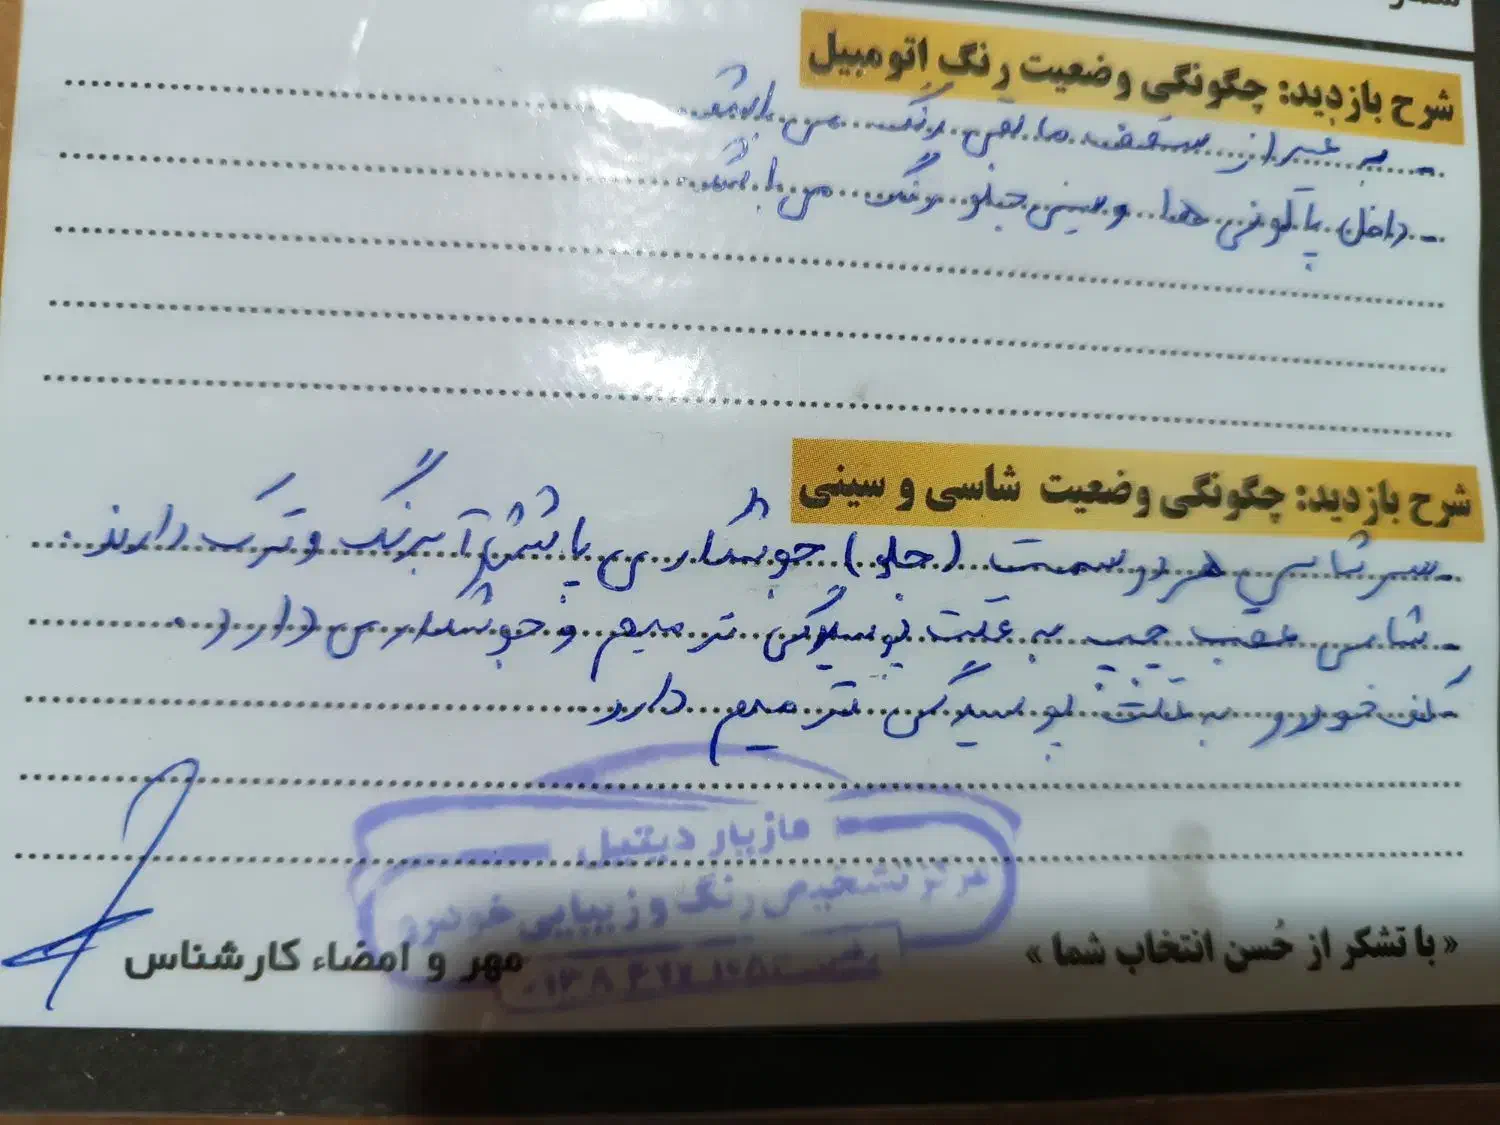 شرح بازدید: چگونگی وضعیت رنگ اتومبیل
- به غیر از سقف مابقی رنگ می باشد
- داخل پالونی ها و سینی جلو رنگ می باشد
شرح بازدید: چگونگی وضعیت شاسی و سینی
- سر شاسی هر دو سمت (جلو) جوشکاری پاشش آبرنگ و ترک دارند.
- شاسی عقب چپ به علت پوسیدگی ترمیم و جوشکاری دارد.
- کف خودرو به علت پوسیدگی ترمیم دارد
مازیار دیتیل
مرکز تشخیص رنگ و زیبایی خودرو
مهر و امضاء کارشناس
« با تشکر از حُسن انتخاب شما »